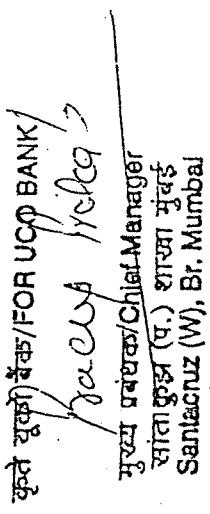 कृते यूको बैंक/FOR UCO BANK
मुख्य प्रबंधक/Chief Manager
सांताक्रुझ (प.) शाखा मुंबई
Santacruz (W), Br. Mumbai